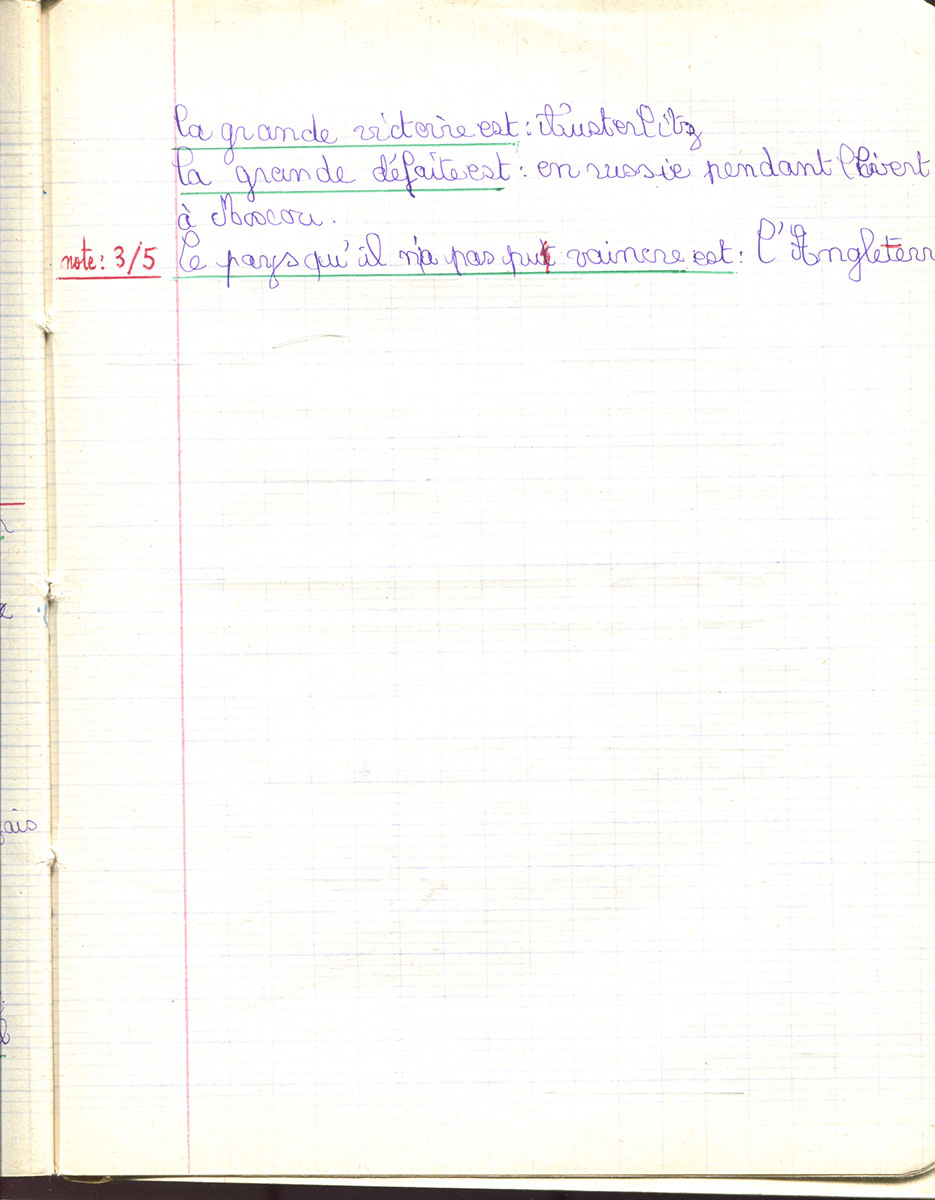 la grande victoire est : Austerlitz
la grande défaite est : en russie pendant l'hivert
à Moscou.
note : 3/5
le pays qu'il n'a pas put vaincre est : l'Angleterr
ais